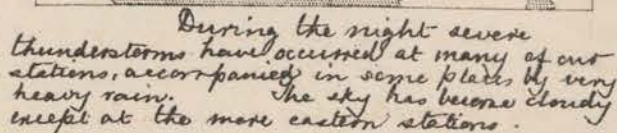 During the night severe
thunderstorms have occurred at many of our
stations, accompanied in some places by very
heavy rain. The sky has become cloudy
except at the more eastern stations.